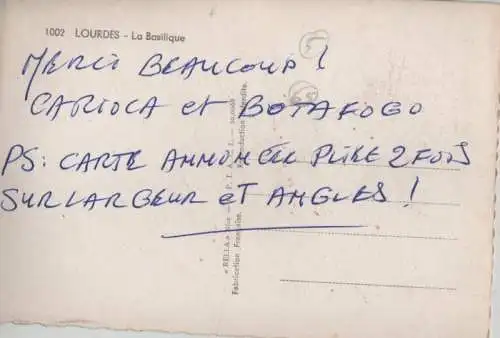 1002 LOURDES - La Basilique
MERCI BEAUCOUP !
CARIOCA et BOTAFOGO
PS: CARTE ANNONCÉE PLIÉE 2 FOIS
SUR LARGEUR et ANGLES !
Fabrication Française.
Reproduction interdite.